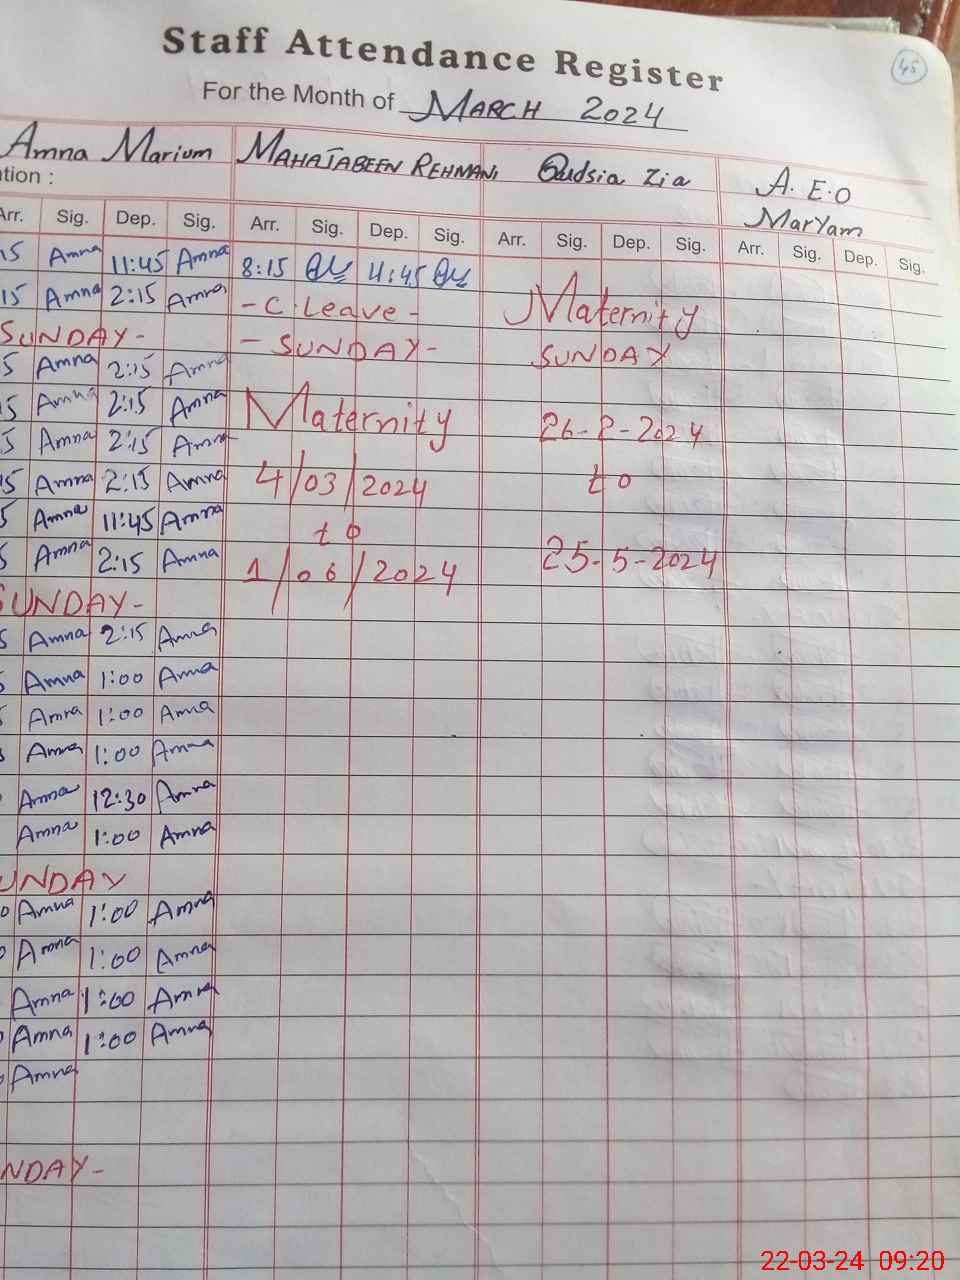 45
Staff Attendance Register
For the Month of MARCH 2024
Amna Marium MAHAJABEEN REHMANI Qudsia Zia A.E.O
MarYam
tion :
Arr. Sig. Dep. Sig. Arr. Sig. Dep. Sig. Arr. Sig. Dep. Sig. Arr. Sig. Dep. Sig.
15 Amna 11:45 Amna 8:15 11:45
15 Amna 2:15 Amna - C. Leave - Maternity
SUNDAY- - SUNDAY- SUNDAY
5 Amna 2:15 Amna
15 Amna 2:15 Amna Maternity 26-2-2024
5 Amna 2:15 Amna
15 Amna 2:15 Amna 4/03/2024 to
5 Amna 11:45 Amna to
5 Amna 2:15 Amna 1/06/2024 25-5-2024
SUNDAY-
5 Amna 2:15 Amna
5 Amna 1:00 Amna
5 Amna 1:00 Amna
Amna 1:00 Amna
0 Amna 12:30 Amna
Amna 1:00 Amna
UNDAY
0 Amna 1:00 Amna
0 Amna 1:00 Amna
Amna 1:00 Amna
0 Amna 1:00 Amna
0 Amna
NDAY-
22-03-24 09:20